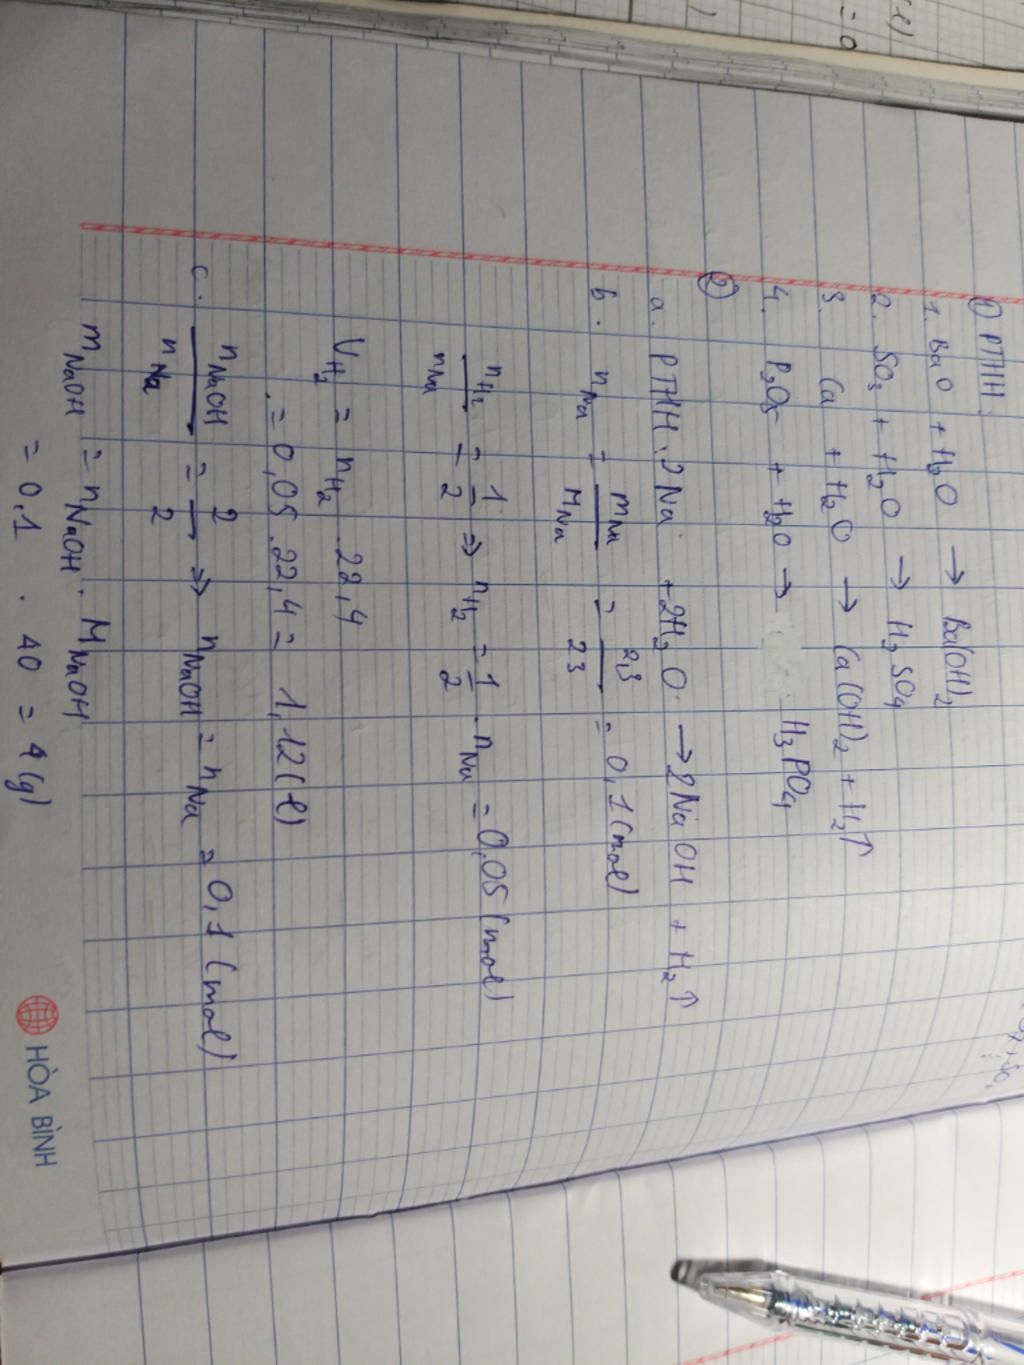 ① PTHH.
1. BaO + H₂O → Ba(OH)₂
2. SO₃ + H₂O → H₂SO₄
3. Ca + H₂O → Ca(OH)₂ + H₂↑
4. P₂O₅ + H₂O → H₃PO₄
②
a. PTHH. 2Na + 2H₂O → 2NaOH + H₂↑
b. n_Na = m_Na / M_Na = 2,3 / 23 = 0,1 (mol)
n_H₂ / n_Na = 1 / 2 => n_H₂ = 1 / 2 . n_Na = 0,05 (mol)
V_H₂ = n_H₂ . 22,4
= 0,05 . 22,4 = 1,12 (l)
c. n_NaOH / n_Na = 2 / 2 => n_NaOH = n_Na = 0,1 (mol)
m_NaOH = n_NaOH . M_NaOH
= 0,1 . 40 = 4 (g)
HÒA BÌNH